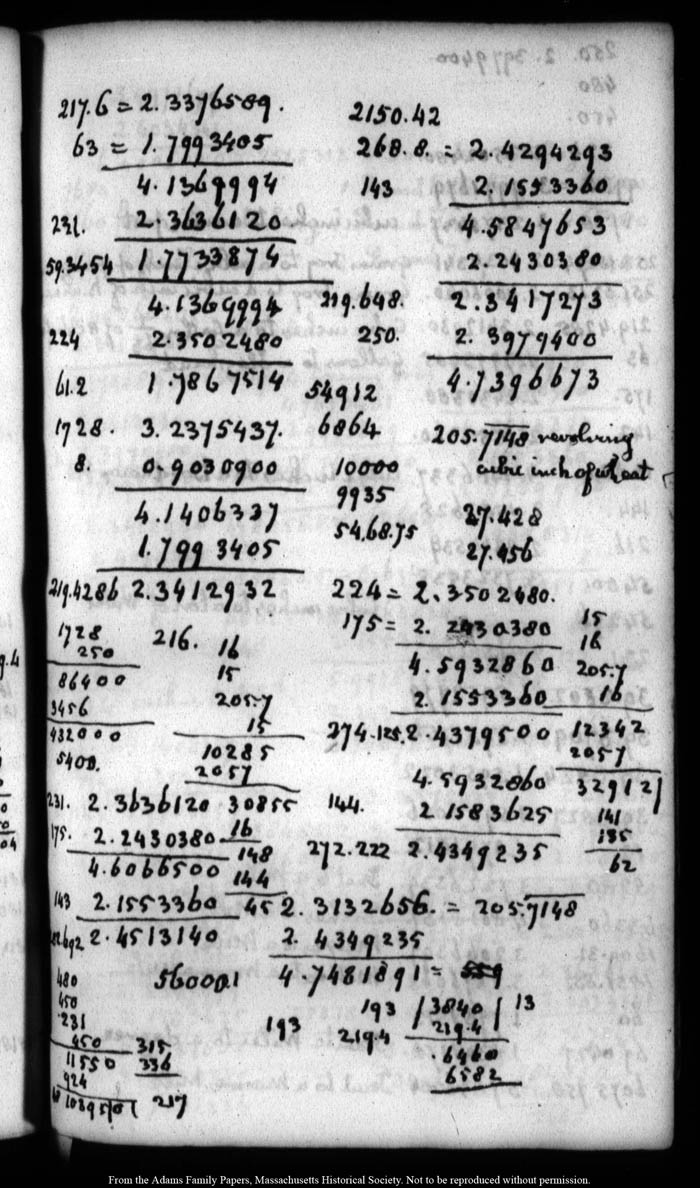 217.6 = 2.3376589.
63 = 1.7993405
4.1369994
231. 2.3636120
59.3454 1.7733874
4.1369994
224 2.3502480
61.2 1.7867514
1728. 3.2375437.
8. 0.9030900
4.1406337
1.7993405
219.4286 2.3412932
1728
250
86400
3456
432000
5400.
216. 16
15
205.7
15
10285
2057
30855
16
148
144
45
231. 2.3636120
175. 2.2430380
4.6066500
143 2.1553360
2.4513140
480
450
231
450
11550
924
315
336
217
560001
2150.42
268.8. = 2.4294293
143 2.1553360
4.5847653
2.2430380
219.648. 2.3417273
250. 2.3979400
4.7396673
54912
6864
10000
9935
54.68.75
205.7148 revolving
cubic inch of wheat
27.428
27.456
224 = 2.3502480.
175 = 2.2430380
4.5932860
2.1553360
274.125. 2.4379500
4.5932860
144. 2.1583625
272.222 2.4349235
15
16
205.7
16
12342
2057
32912
141
135
62
2.3132656. = 205.7148
2.4349235
4.7481891 =
193
193 /3840/ 13
219.4 219.4
6460
6582
From the Adams Family Papers, Massachusetts Historical Society. Not to be reproduced without permission.